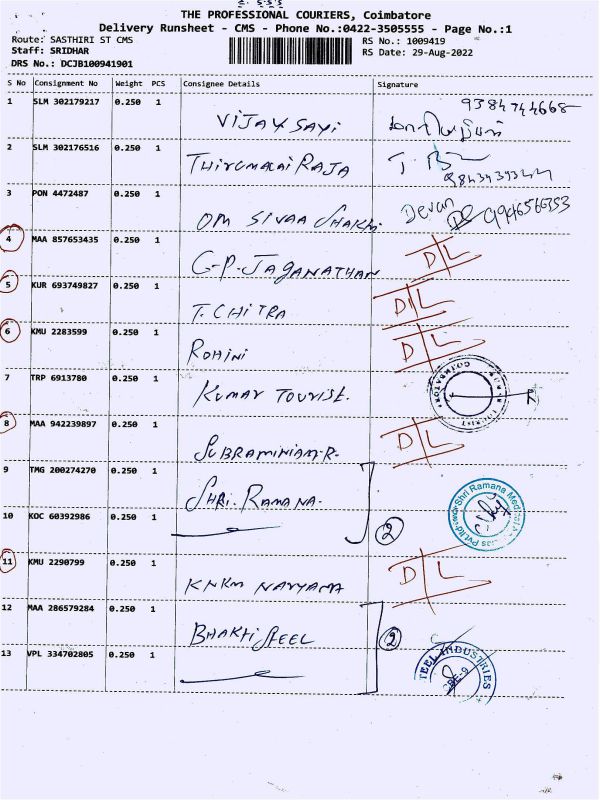 THE PROFESSIONAL COURIERS, Coimbatore
Delivery Runsheet - CMS - Phone No.:0422-3505555 - Page No.:1
Route: SASTHIRI ST CMS RS No.: 1009419
Staff: SRIDHAR RS Date: 29-Aug-2022
DRS No.: DCJB100941901
S No Consignment No Weight PCS Consignee Details Signature
1 SLM 302179217 0.250 1 VIJAY SAYI 9384744668
2 SLM 302176516 0.250 1 THIRUMALAI RAJA
3 PON 4472487 0.250 1 OM SIVAA SHAKTHI Devan 9946566353
4 MAA 857653435 0.250 1 G-P-JAGANATHAN D/L
5 KUR 693749827 0.250 1 T. CHITRA D/L
6 KMU 2283599 0.250 1 ROHINI D/L
7 TRP 6913780 0.250 1 KUMAR TOURIST. COIMBATORE
8 MAA 942239897 0.250 1 SUBRAMINIAM-R- D/L
9 TMG 200274270 0.250 1 SHRI. RAMANA.
10 KOC 60392986 0.250 1 2 Shri Ramana
11 KMU 2290799 0.250 1 KNKM NARYAMA D/L
12 MAA 286579284 0.250 1 BHAKTHI STEEL 2
13 VPL 334702805 0.250 1 STEEL INDUSTRIES CBE-9